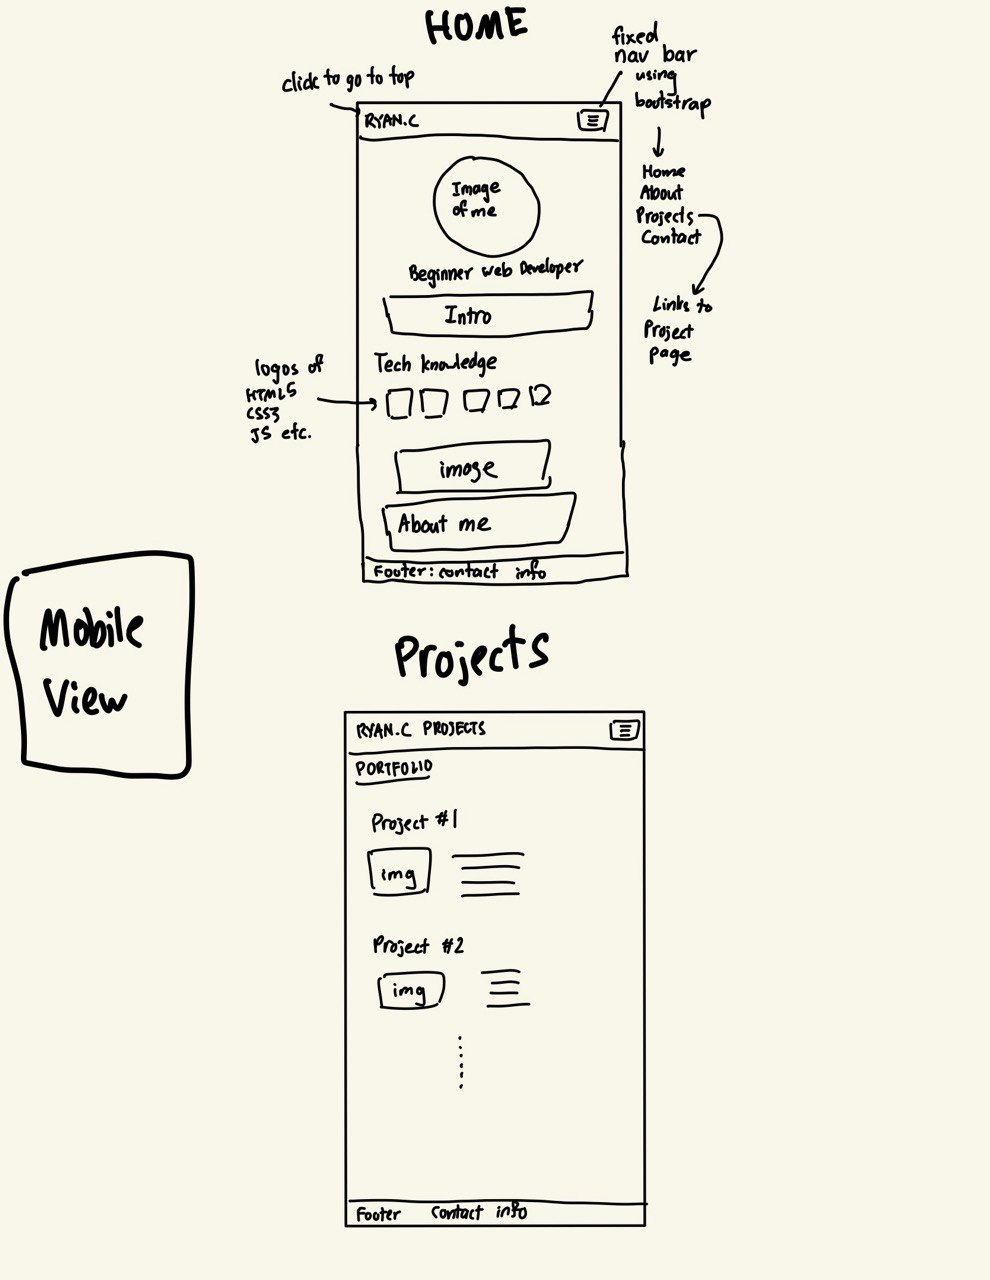 HOME
fixed
nav bar
using
bootstrap
click to go to top
RYAN.C
Home
About
Projects
Contact
Links to
Project
page
Image
of me
Beginner Web Developer
Intro
Tech knowledge
logos of
HTML5
CSS3
JS etc.
image
About me
Footer: contact info
Mobile
View
Projects
RYAN.C PROJECTS
PORTFOLIO
Project #1
img
Project #2
img
Footer contact info